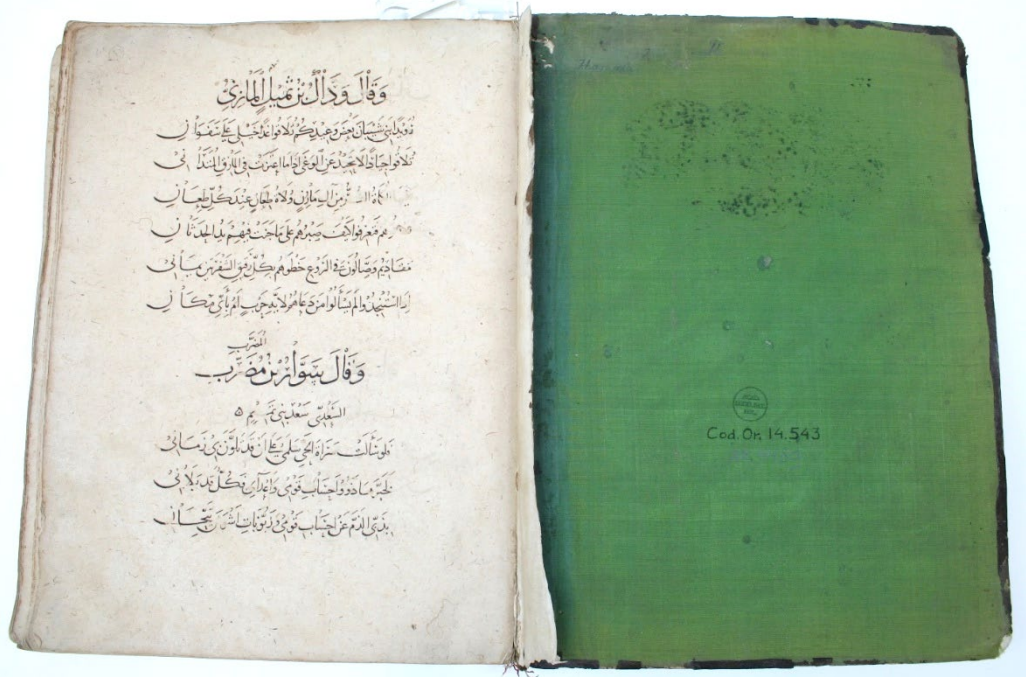 وَقَالَ وَدَّاكُ بْنُ ثُمَيْلٍ الْمَازِنِيُّ
رُوَيْدًا بَنِي شَيْبَانَ بَعْضَ وَعِيدِكُمْ تُلَاقُوا غَدًا خَيْلِي عَلَى سَفَوَانِ
تُلَاقُوا جِيَادًا لَا تَحِيدُ عَنِ الْوَغَى إِذَا مَا اغْتَدَتْ فِي الْمَأْزِقِ الْمُتَدَانِي
الكُمَاةُ مِنْ آلِ مَازِنٍ وُلَاةُ طِعَانٍ عِنْدَ كُلِّ طِعَانِ
هم فَتَعْرِفُوا كَيْفَ صَبْرُهُمْ عَلَى مَا جَنَتْ فِيهِمْ يَدُ الْحَدَثَانِ
مَقَادِيمُ وَصَّالُونَ فِي الرَّوْعِ خَطْوَهُمْ بِكُلِّ رَقِيقِ الشَّفْرَتَيْنِ يَمَانِي
إِذَا اسْتُنْجِدُوا لَمْ يَسْأَلُوا مَنْ دَعَاهُمُ لِأَيَّةِ حَرْبٍ أَمْ بِأَيِّ مَكَانِ
الْمُضَرِّبِ
وَقَالَ سَوَّارُ بْنُ مُضَرَّبٍ
السَّعْدِيُّ سَعْدُ بَنِي تَمِيمٍ
فَلَوْ سَأَلَتْ سَرَاةَ الْحَيِّ سَلْمَى عَلَى أَنْ قَدْ تَلَوَّنَ بِي زَمَانِي
لَخَبَّرَهَا ذَوُو أَحْسَابِ قَوْمِي وَأَعْدَائِي فَكُلٌّ قَدْ بَلَانِي
بِذَبِّي الذَّمَّ عَنْ أَحْسَابِ قَوْمِي وَزَبُّونَاتِ أَشْوَسَ تَيَّحَانِ
Cod. Or. 14.543